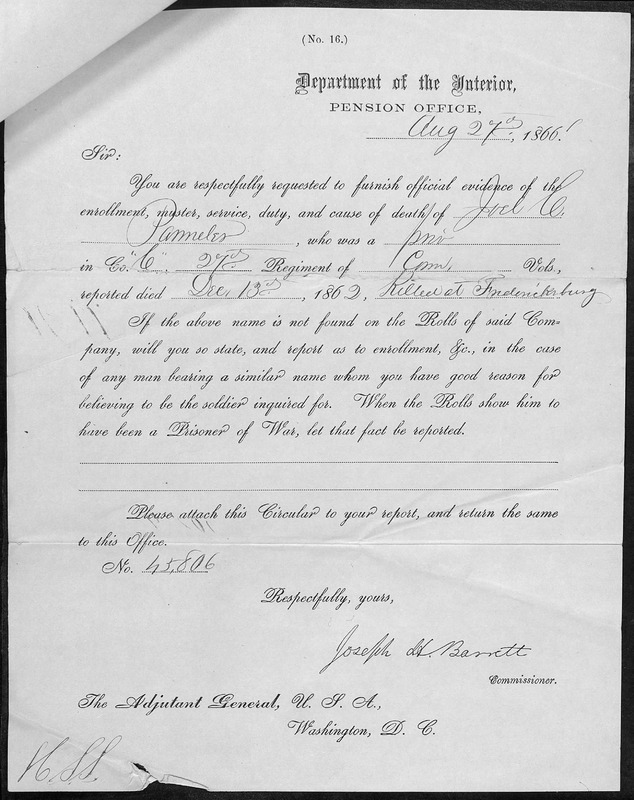 (No. 16.)
Department of the Interior,
PENSION OFFICE,
Aug 27th, 1866.
Sir:
You are respectfully requested to furnish official evidence of the
enrollment, muster, service, duty, and cause of death of Joel C.
Parmelee, who was a priv
in Co. "C", 27th Regiment of Conn. Vols.,
reported died Dec. 13th, 1862, Killed at Fredericksburg
If the above name is not found on the Rolls of said Com-
pany, will you so state, and report as to enrollment, &c., in the case
of any man bearing a similar name whom you have good reason for
believing to be the soldier inquired for. When the Rolls show him to
have been a Prisoner of War, let that fact be reported.
Please attach this Circular to your report, and return the same
to this Office.
No. 45,806
Respectfully, yours,
Joseph H. Barrett
Commissioner.
The Adjutant General, U. S. A.,
Washington, D. C.
H.S.S.